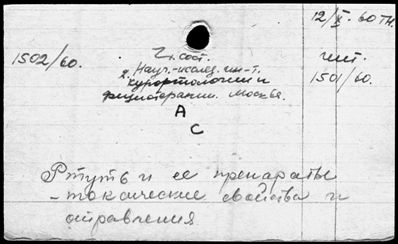 12/X - 60 тн.
1502/60.
Гл. сост.
чит.
2. Науч.-исслед. ин-т.
1501/60.
курортологии и
физиотерапии. Москва.
А
С
Ртуть и ее препараты
- токсические свойства и
отравления